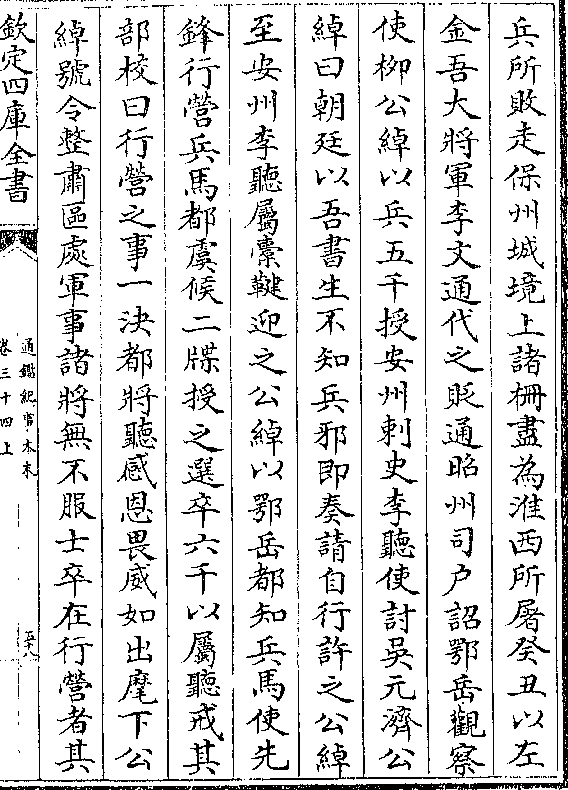 兵所敗走保州城境上諸柵盡為淮西所屠癸丑以左
金吾大將軍李文通代之貶通昭州司户詔鄂岳觀察
使柳公綽以兵五千授安州刺史李聽使討吳元濟公
綽曰朝廷以吾書生不知兵邪即奏請自行許之公綽
至安州李聽屬櫜鞬迎之公綽以鄂岳都知兵馬使先
鋒行營兵馬都虞候二牒授之選卒六千以屬聽戒其
部校曰行營之事一決都將聽感恩畏威如出麾下公
綽號令整肅區處軍事諸將無不服士卒在行營者其
欽定四庫全書
通鑑紀事本末
卷三十四上
五十八